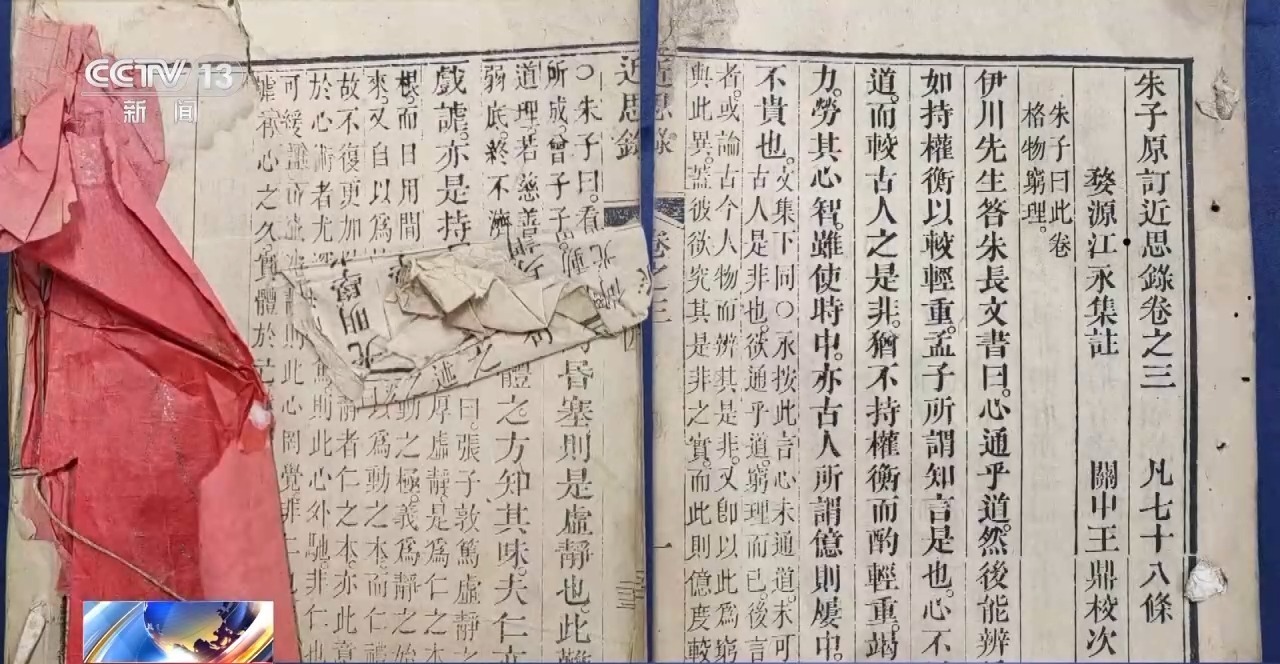 CCTV 13
新闻
朱子原訂近思錄卷之三 凡七十八條
婺源江永集註 關中王鼎校次
朱子曰此卷
格物窮理。
伊川先生答朱長文書曰。心通乎道。然後能辨
如持權衡以較輕重。孟子所謂知言是也。心不
道。而較古人之是非。猶不持權衡而酌輕重。竭
力。勞其心智。雖使時中。亦古人所謂億則屢中。
不貴也。文集下同○永按此言心未通道。未可
古人是非也。欲通乎道。窮理而已。後言
者。或論古今人物而辨其是非。又卽以此爲窮
與此異。蓋彼欲究其是非之實。而此則億度較
近思錄 卷之三 一
近思錄
○朱子曰。看 昏塞則是虛靜也。此難
所成。曾子
道理。若慈善 體之方知其味。夫仁亦
弱底。終不濟 曰。張子敦篤虛靜
戲謔。亦是持 述厚虛靜是爲仁之本
根。而日用間 之動之極。義爲靜之始
來。又自以爲 以爲動之本。而仁禮
故不復更加 靜者仁之本。亦此意
於心術者尤 焉。則此心外馳。非仁也
可緩 則此心罔覺。非仁也
心之久。實體於己
光明